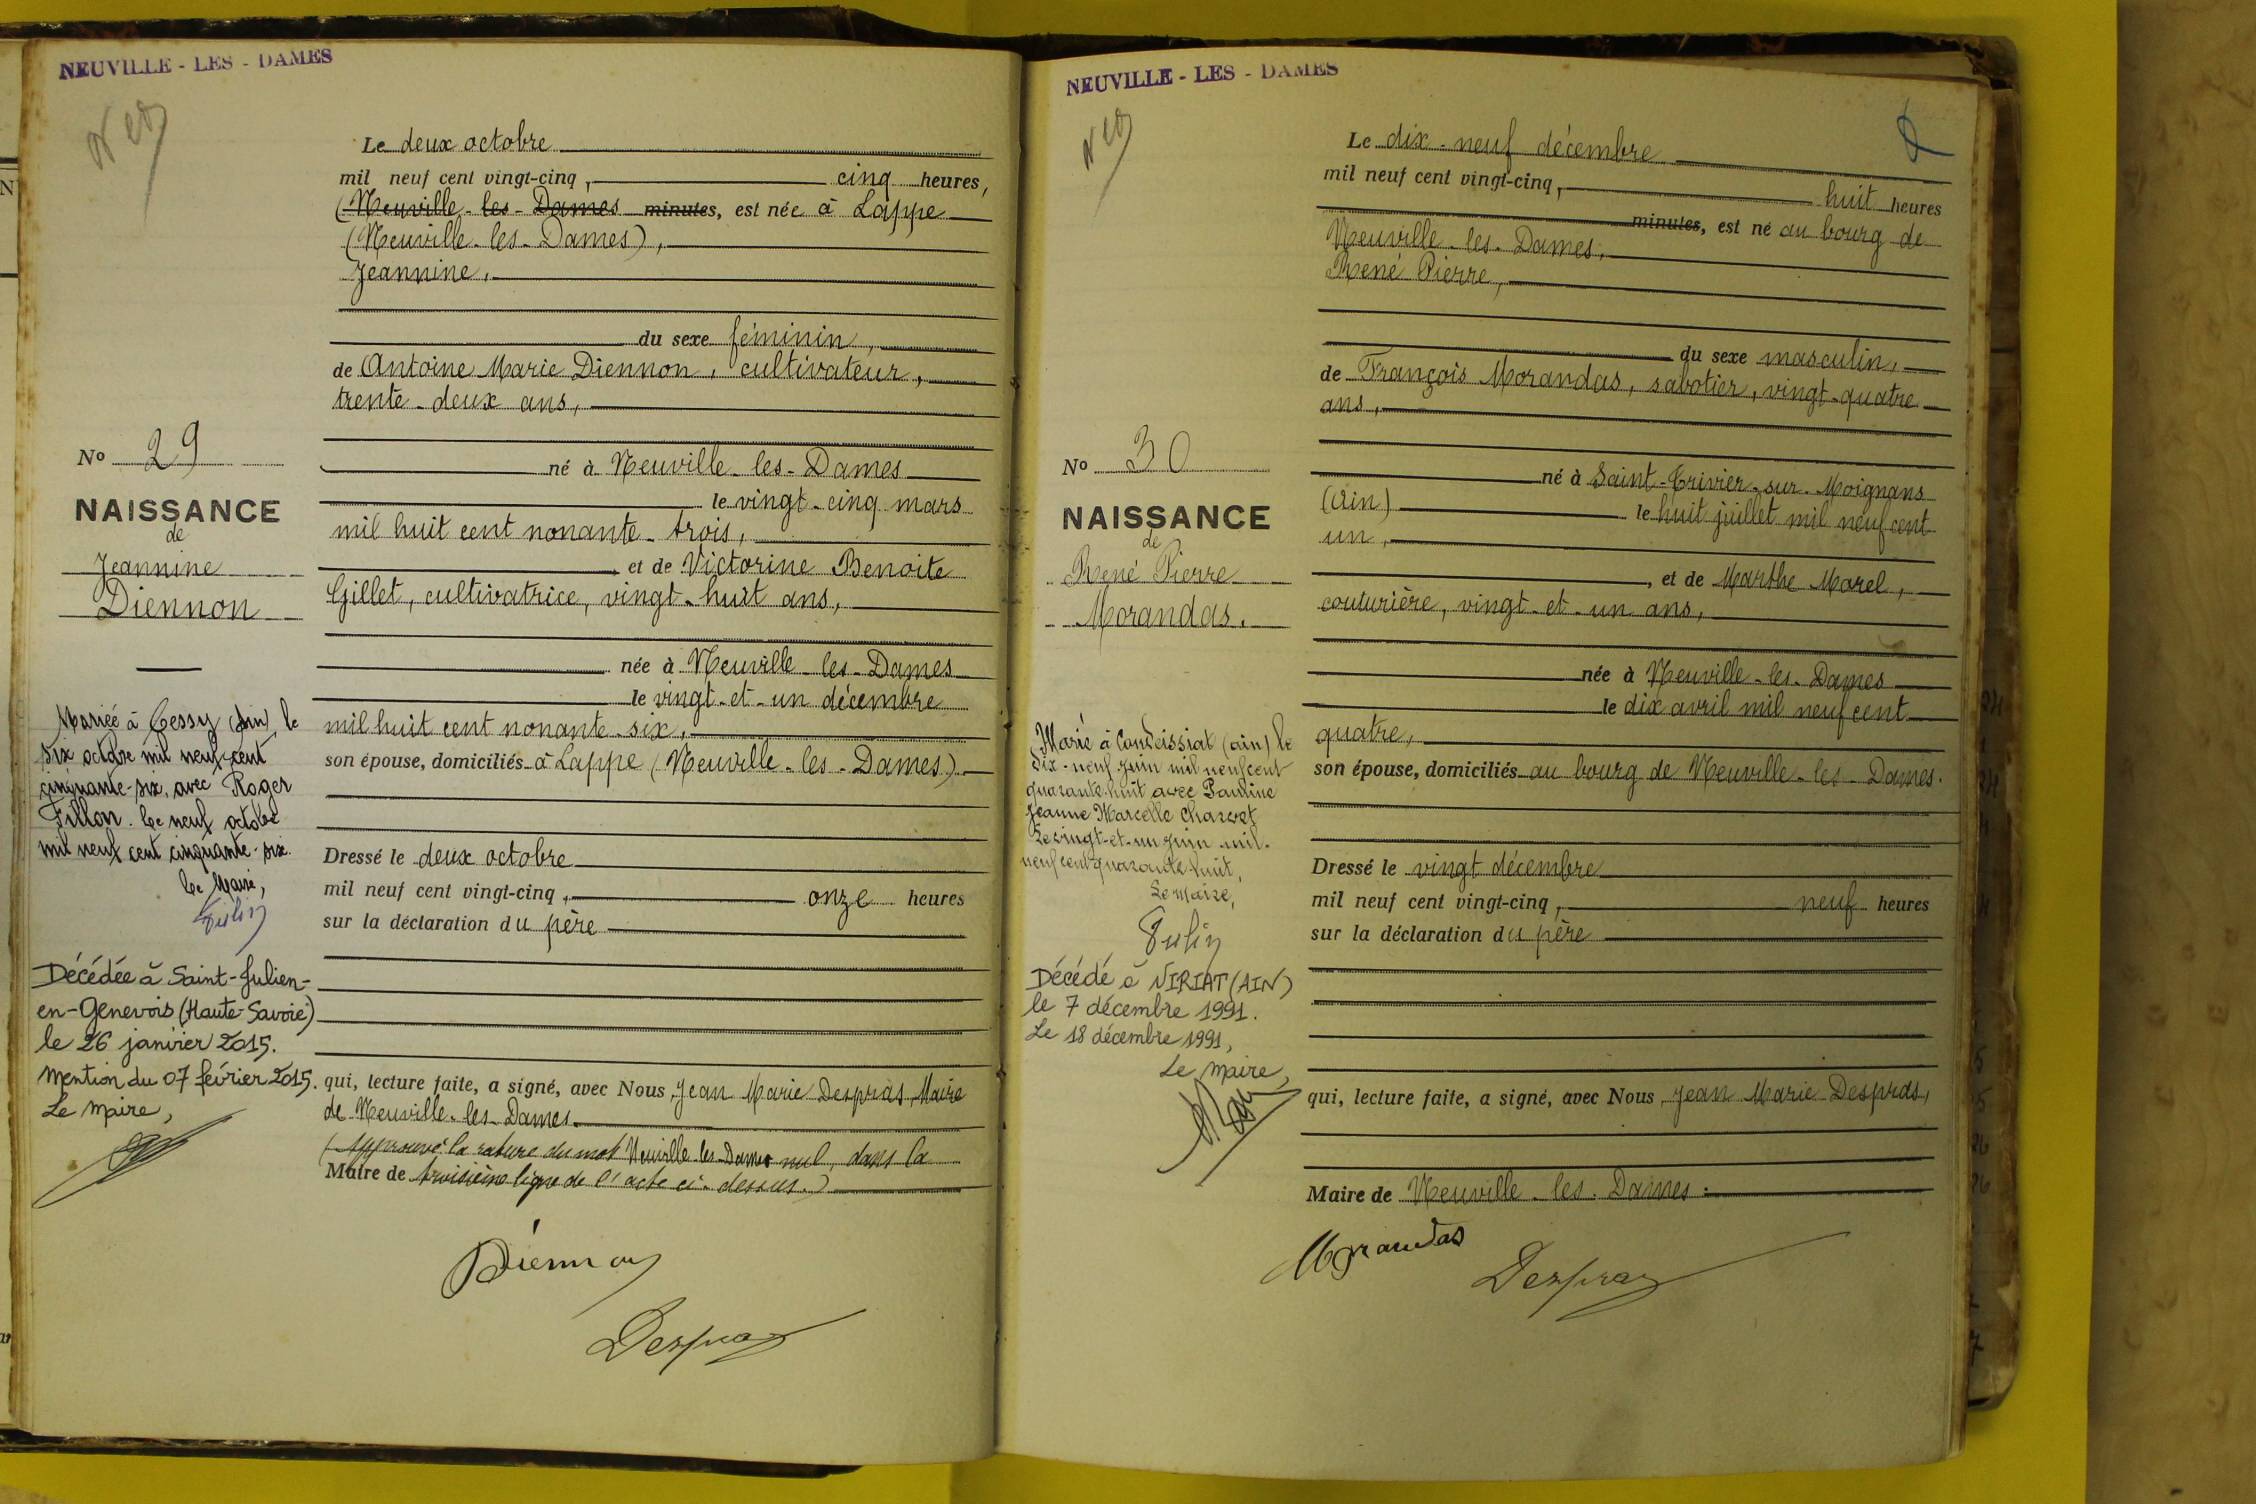 NEUVILLE - LES - DAMES
Le deux octobre
mil neuf cent vingt-cinq, cinq heures,
(Neuville-les-Dames minutes, est née à Lappe
(Neuville-les-Dames),
Jeannine,
du sexe féminin,
de Antoine Marie Diennon, cultivateur,
trente-deux ans,
né à Neuville-les-Dames
le vingt-cinq mars
mil huit cent nonante-trois,
et de Victorine Benoite
Gillet, cultivatrice, vingt-huit ans,
née à Neuville-les-Dames
le vingt-et-un décembre
mil huit cent nonante-six,
son épouse, domiciliés à Lappe (Neuville-les-Dames).
Dressé le deux octobre
mil neuf cent vingt-cinq, onze heures
sur la déclaration du père
qui, lecture faite, a signé, avec Nous, Jean Marie Despras, Maire
de Neuville-les-Dames.
(Approuvé la rature du mot Neuville-les-Dames nul, dans la
Maire de troisième ligne de l'acte ci-dessus.)
Diennon
Despras
No 29
NAISSANCE
de
Jeannine
Diennon
Mariée à Cessy (Ain), le
six octobre mil neuf cent
cinquante-six, avec Roger
Fillon. Le neuf octobre
mil neuf cent cinquante-six.
Le Maire,
Décédée à Saint-Julien-
en-Genevois (Haute-Savoie)
le 26 janvier 2015.
Mention du 07 février 2015.
Le Maire,
NEUVILLE - LES - DAMES
Le dix-neuf décembre
mil neuf cent vingt-cinq, huit heures
minutes, est né au bourg de
Neuville-les-Dames,
René Pierre,
du sexe masculin,
de François Morandas, sabotier, vingt-quatre
ans,
né à Saint-Trivier-sur-Moignans
(Ain) le huit juillet mil neuf cent
un,
, et de Marthe Marel,
couturière, vingt-et-un ans,
née à Neuville-les-Dames
le dix avril mil neuf cent
quatre,
son épouse, domiciliés au bourg de Neuville-les-Dames.
Dressé le vingt décembre
mil neuf cent vingt-cinq, neuf heures
sur la déclaration du père
qui, lecture faite, a signé, avec Nous, Jean Marie Despras,
Maire de Neuville-les-Dames.
Morandas
Despras
No 30
NAISSANCE
de
René Pierre
Morandas.
Marié à Condeissiat (Ain) le
dix-neuf juin mil neuf cent
quarante-huit avec Pauline
Jeanne Marcelle Charvet
Le vingt-et-un juin mil
neuf cent quarante-huit,
Le Maire,
Décédé à VIRIAT (AIN)
le 7 décembre 1991.
Le 18 décembre 1991,
Le Maire,